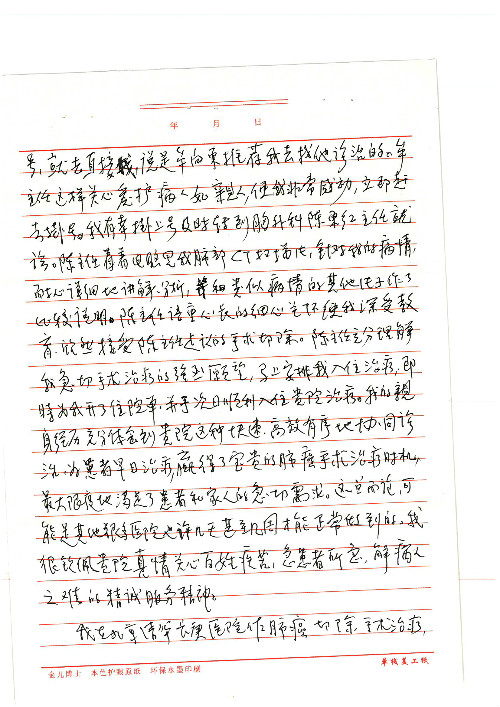 年 月 日
号,就去直接找,说是牟向东推荐我去找他诊治的。牟
主任这样关心爱护病人如亲人,使我非常感动,立即赶
去掛号。我有幸掛上号及时转到胸外科陈东红主任就
诊。陈主任看着电脑里我肺部CT扫描片,针对我的病情,
耐心详细地讲解分析,并细类似病情的其他片子作了
比较说明。陈主任语重心长的细心关怀使我深受教
育,欣然接受陈主任建议的手术切除。陈主任充分理解
我急切手术治疗的强烈愿望,马上安排我入住治疗,即
時为我开了住院单,并于次日顺利入住贵院治疗。我的親
身经历充分体会到贵院这种快速、高效有序地协同诊
治,为患者早日治疗,赢得了宝贵的肺癌手术治疗时机,
最大限度地满足了患者和家人的急切需求。这些而论可
能是其他很多医院也许几天甚至几周才能正常做到的。我
很钦佩贵院真情关心百姓疾苦,急患者所急,解病人
之情的精诚服务精神。
我在北京清华长庚医院作肺癌切除手术治疗,
金九博士 本色护眼原纸 环保水墨印刷
单线美工纸